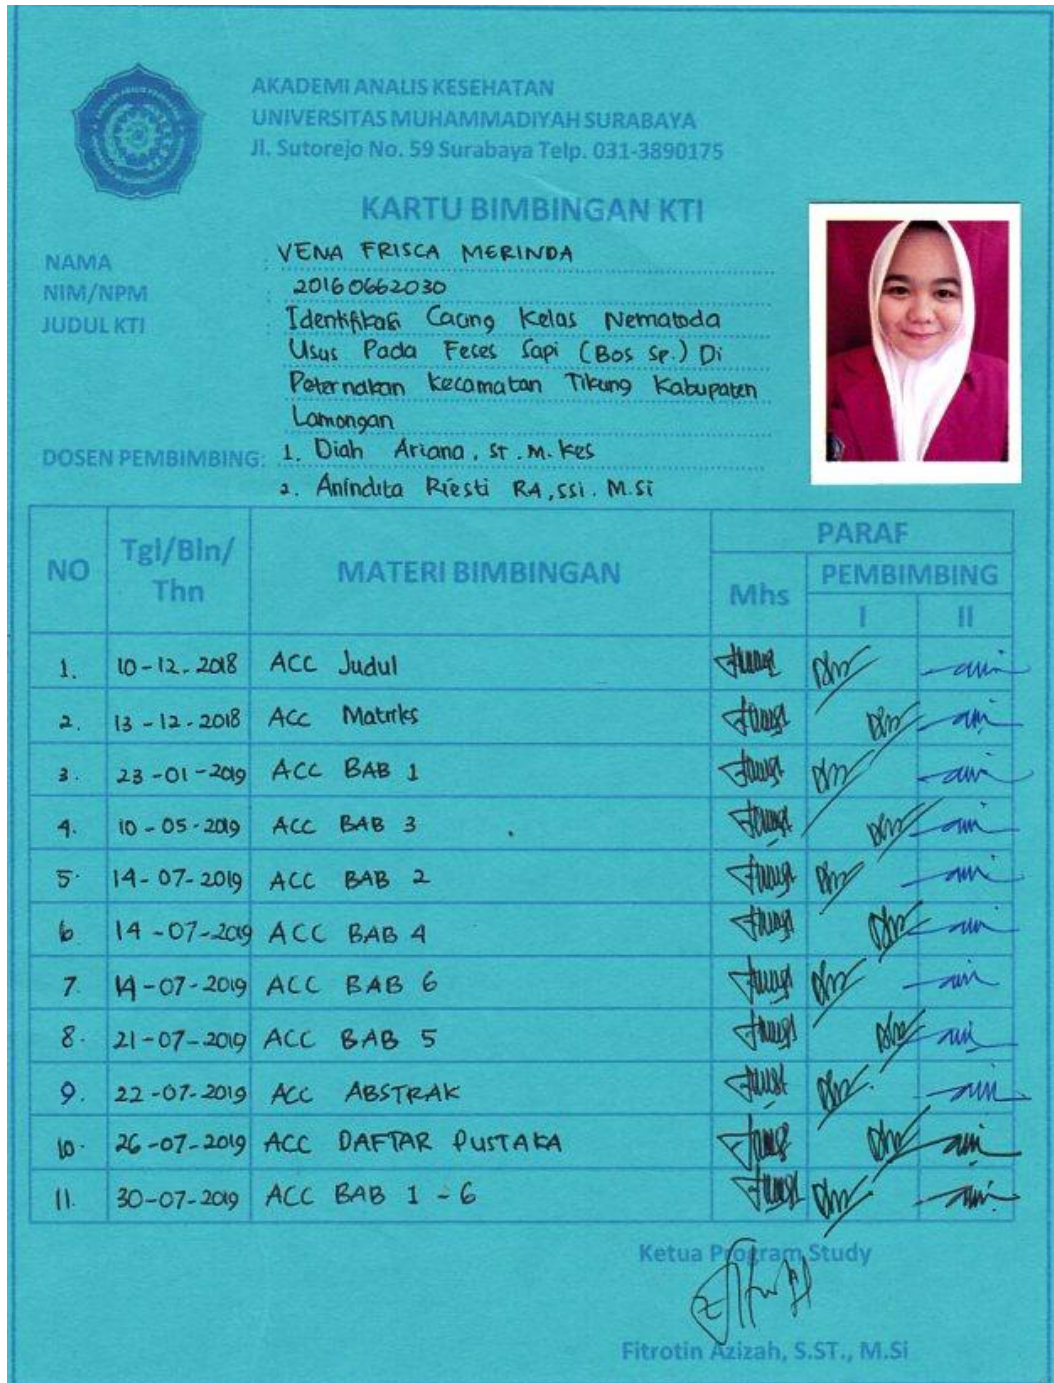 AKADEMI ANALIS KESEHATAN
UNIVERSITAS MUHAMMADIYAH SURABAYA
Jl. Sutorejo No. 59 Surabaya Telp. 031-3890175
KARTU BIMBINGAN KTI
NAMA : VENA FRISCA MERINDA
NIM/NPM : 20160662030
JUDUL KTI : Identifikasi Cacing Kelas Nematoda
Usus Pada Feses Sapi (Bos Sp.) Di
Peternakan Kecamatan Tikung Kabupaten
Lamongan
DOSEN PEMBIMBING: 1. Diah Ariana, ST. M. Kes
2. Anindita Riesti RA, SSi. M.Si
NO Tgl/Bln/Thn MATERI BIMBINGAN PARAF
Mhs PEMBIMBING
I II
1. 10-12-2018 ACC Judul
2. 13-12-2018 ACC Matriks
3. 23-01-2019 ACC BAB 1
4. 10-05-2019 ACC BAB 3
5. 14-07-2019 ACC BAB 2
6 14-07-2019 ACC BAB 4
7. 14-07-2019 ACC BAB 6
8. 21-07-2019 ACC BAB 5
9. 22-07-2019 ACC ABSTRAK
10. 26-07-2019 ACC DAFTAR PUSTAKA
11. 30-07-2019 ACC BAB 1 - 6
Ketua Program Study
Fitrotin Azizah, S.ST., M.Si